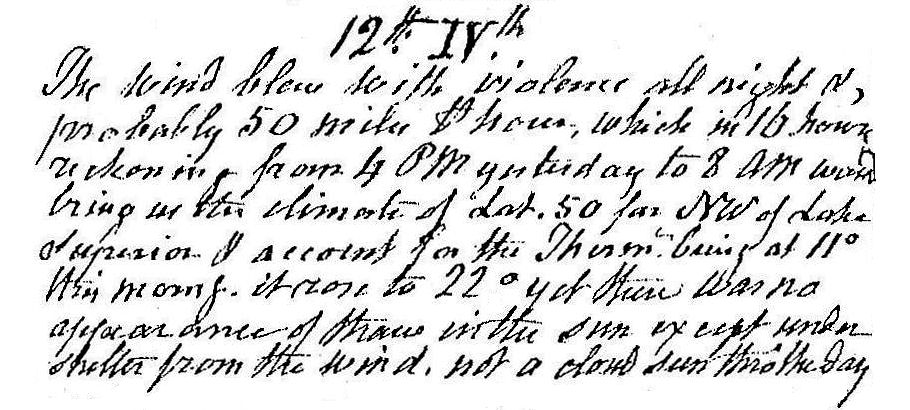 12th. IVth
The wind blew with violence all night &,
probably 50 miles ⅌ hour, which in 16 hours
reckoning from 4 PM yesterday to 8 AM would
bring us the climate of Lat. 50 far NW of Lake
Superior & account for the Thermr. being at 11°
this morng. it rose to 22° yet there was no
appearance of thaw in the sun except under
shelter from the wind. not a cloud seen thro' the day